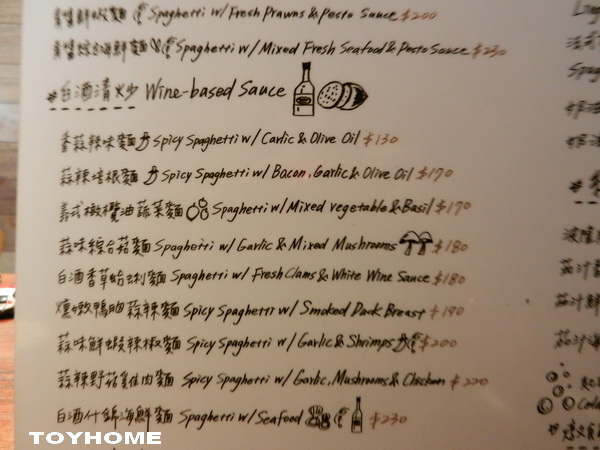 青醬鮮蝦麵 Spaghetti w/ Fresh Prawns & Pesto Sauce $200
青醬綜合海鮮麵 Spaghetti w/ Mixed Fresh Seafood & Pesto Sauce $230
#白酒清炒 Wine-based Sauce
香蒜辣味麵 Spicy Spaghetti w/ Garlic & Olive Oil $130
蒜辣培根麵 Spicy Spaghetti w/ Bacon, Garlic & Olive Oil $170
義式橄欖油蔬菜麵 Spaghetti w/ Mixed vegetable & Basil $170
蒜味綜合菇麵 Spaghetti w/ Garlic & Mixed Mushrooms $180
白酒香草蛤蜊麵 Spaghetti w/ Fresh Clams & White Wine Sauce $180
燻嫩鴨胸蒜辣麵 Spicy Spaghetti w/ Smoked Duck Breast $190
蒜味鮮蝦辣椒麵 Spicy Spaghetti w/ Garlic & Shrimps $200
蒜辣野菇雞肉麵 Spicy Spaghetti w/ Garlic, Mushrooms & Chicken $220
白酒什錦海鮮麵 Spaghetti w/ Seafood $230
TOYHOME